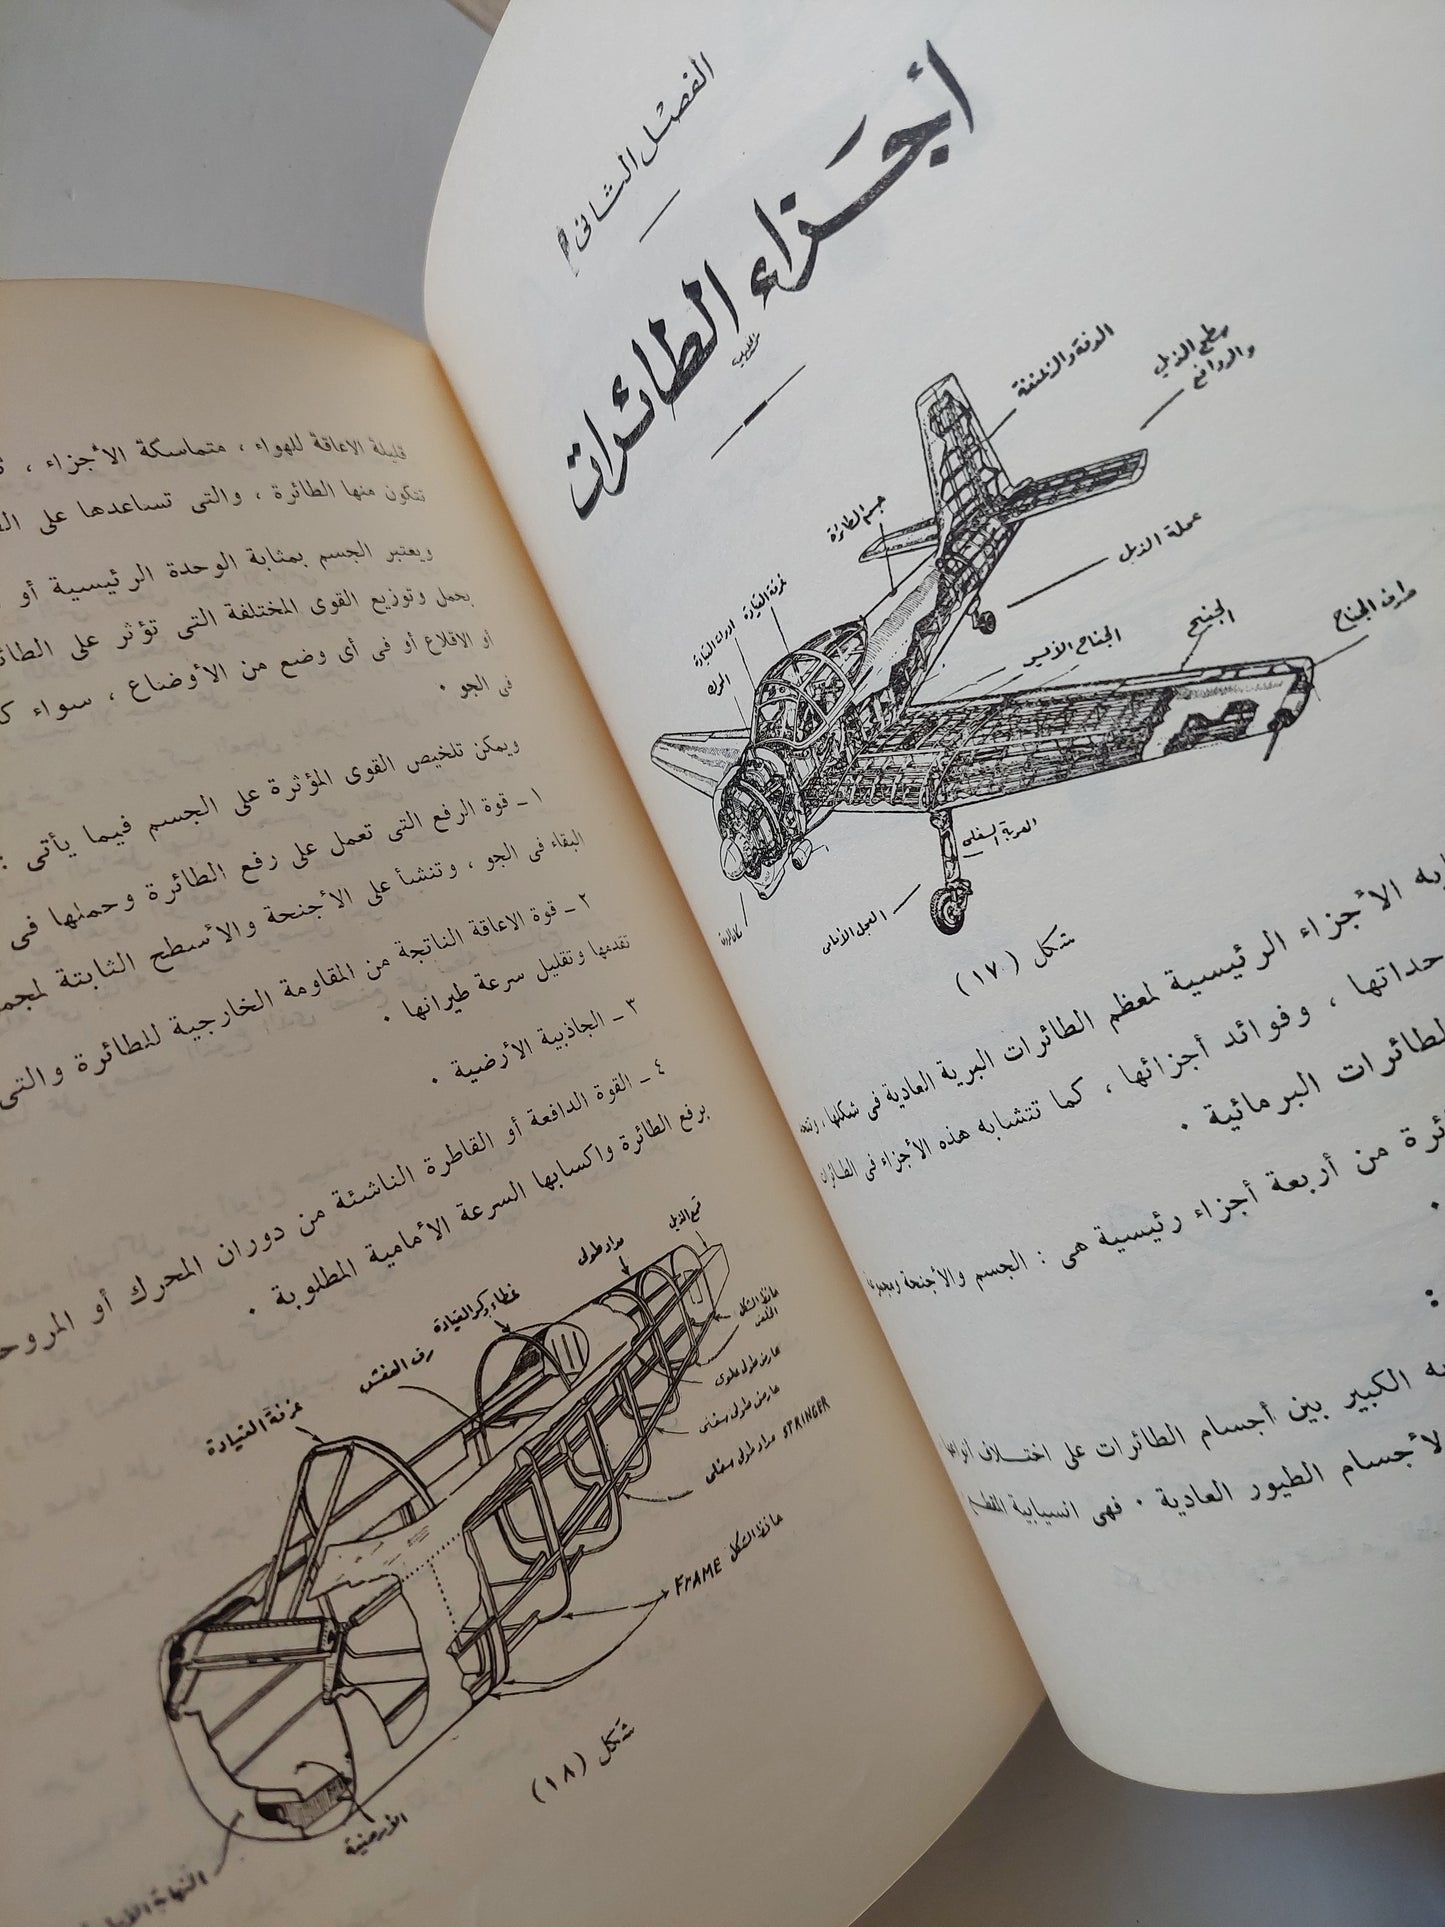 الفصل الثاني
أجزاء الطائرات
الدفة والزعنفة
سطح الذيل
والروافع
جسم الطائرة
عجلة الذيل
غرفة القيادة
المحرك
الجناح الأيسر
الجنيح
طرف الجناح
العجل الأمامى
شكل (١٧)
الأجزاء الرئيسية لمعظم الطائرات البرية العادية فى شكلها ،
، وفوائد أجزائها ، كما تتشابه هذه الأجزاء فى الطائرات
الطائرات البرمائية .
من أربعة أجزاء رئيسية هى : الجسم والأجنحة
الكبير بين أجسام الطائرات على اختلاف أنواعها
لأجسام الطيور العادية . فهى انسيابية المقطع
قليلة الاعاقة للهواء ، متماسكة الأجزاء ،
تتكون منها الطائرة ، والتى تساعدها على
ويعتبر الجسم بمثابة الوحدة الرئيسية أو
يحمل وتوزيع القوى المختلفة التى تؤثر على
أو الاقلاع أو فى أى وضع من الأوضاع ، سواء
فى الجو .
ويمكن تلخيص القوى المؤثرة على الجسم فيما يأتى :
١ - قوة الرفع التى تعمل على رفع الطائرة وحملها فى
البقاء فى الجو ، وتنشأ على الأجنحة والأسطح الثابتة
٢ - قوة الاعاقة الناتجة من المقاومة الخارجية للطائرة والتى
تقدمها وتقليل سرعة طيرانها .
٣ - الجاذبية الأرضية .
٤ - القوة الدافعة أو القاطرة الناشئة من دوران المحرك أو
برفع الطائرة واكسابها السرعة الأمامية المطلوبة .
قمع الذيل
مداد طولى
غطاء وكر القيادة
رف العفش
غرفة القيادة
حافظ الشكل
الخلفى
عارض طولى علوى
عارض طولى سفلى
مداد طولى سفلى STRINGER
حافظ الشكل FRAME
الأرضية
شكل (١٨)